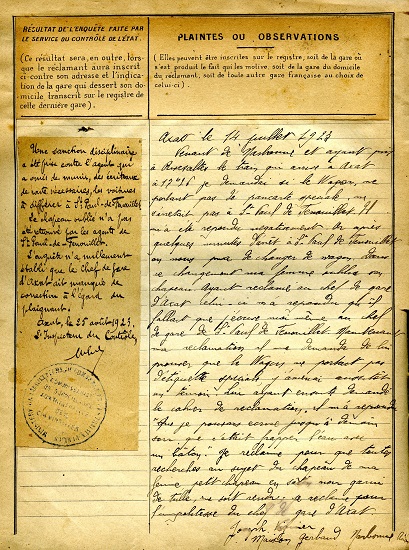 RÉSULTAT DE L'ENQUÊTE FAITE PAR
LE SERVICE DU CONTRÔLE DE L'ÉTAT.
(Ce résultat sera, en outre, lors-
que le réclamant aura inscrit
ci-contre son adresse et l'indica-
tion de la gare qui dessert son do-
micile transcrit sur le registre de
cette dernière gare).
Une sanction disciplinaire
a été prise contre l'agent qui
a omis de munir, des écriteaux
de route nécessaires, les voitures
à différer à St Paul-de-Fenouillet
Le chapeau oublié n'a pas
été retrouvé par les agents de
St Paul-de-Fenouillet.
L'enquête n'a nullement
établi que le Chef de gare
d'Axat ait manqué de
correction à l'égard du
plaignant.
Axat, le 25 août 1923.
L'Inspecteur du Contrôle,
PLAINTES OU OBSERVATIONS
(Elles peuvent être inscrites sur le registre, soit de la gare où
s'est produit le fait qui les motive, soit de la gare du domicile
du réclamant, soit de toute autre gare française au choix de
celui-ci).
Axat le 14 juillet 1923
Venant de Narbonne et ayant pris
à Rivesaltes le train qui arrive à Axat
à je demandai si le Wagon, ne
portant pas de pancarte spéciale, on
s'arrêtait pas à St Paul de Fenouillet. Il
m'a été répondu négativement. Or après
quelques minutes d'arrêt à St Paul de Fenouillet
on nous pria de changer de wagon. Dans
ce changement ma femme oublia son
chapeau. Ayant réclamé au chef de gare
d'Axat celui-ci m'a répondu qu'il
fallait que j'écrive moi-même au chef
de gare de St Paul de Fenouillet. Maintenant
ma réclamation, il me demande de lui
prouver que le Wagon ne portait pas
d'étiquette spéciale, j'amenai aussitôt
un témoin. Lui ayant ensuite demandé
le cahier de réclamation, il m'a répondu
que je pouvais écrire jusqu'à demain
soir, que c'était frapper l'eau avec
un bâton. Je réclame pour que toutes
recherches au sujet du chapeau de ma
femme, petit chapeau en noir garni
de tulle, me soit rendu. Je réclame pour
l'impolitesse du chef de gare d'Axat.
Joseph
Gerbaud Narbonne